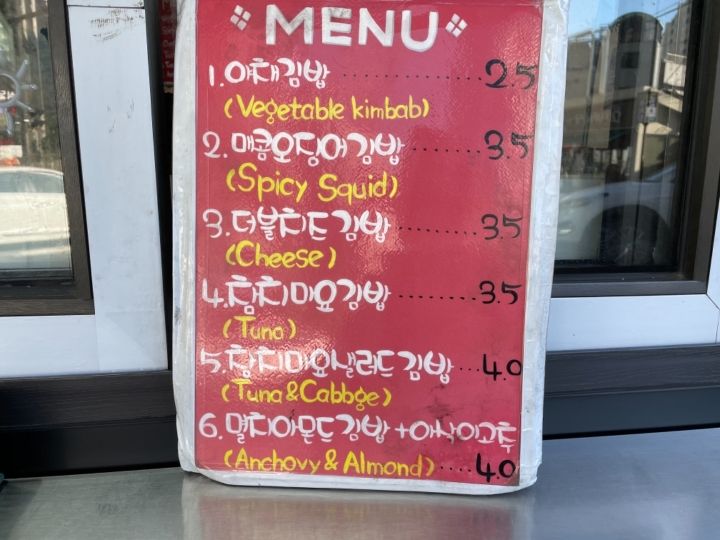 MENU
1. 야채김밥 ........... 2.5
(Vegetable kimbab)
2. 매콤오징어김밥 ..... 3.5
(Spicy Squid)
3. 더블치즈김밥 ........ 3.5
(Cheese)
4. 참치마요김밥 ....... 3.5
(Tuna)
5. 참치마요샐러드김밥 ... 4.0
(Tuna & Cabbge)
6. 멸치아몬드김밥 + 아삭이고추
(Anchovy & Almond) .... 4.0